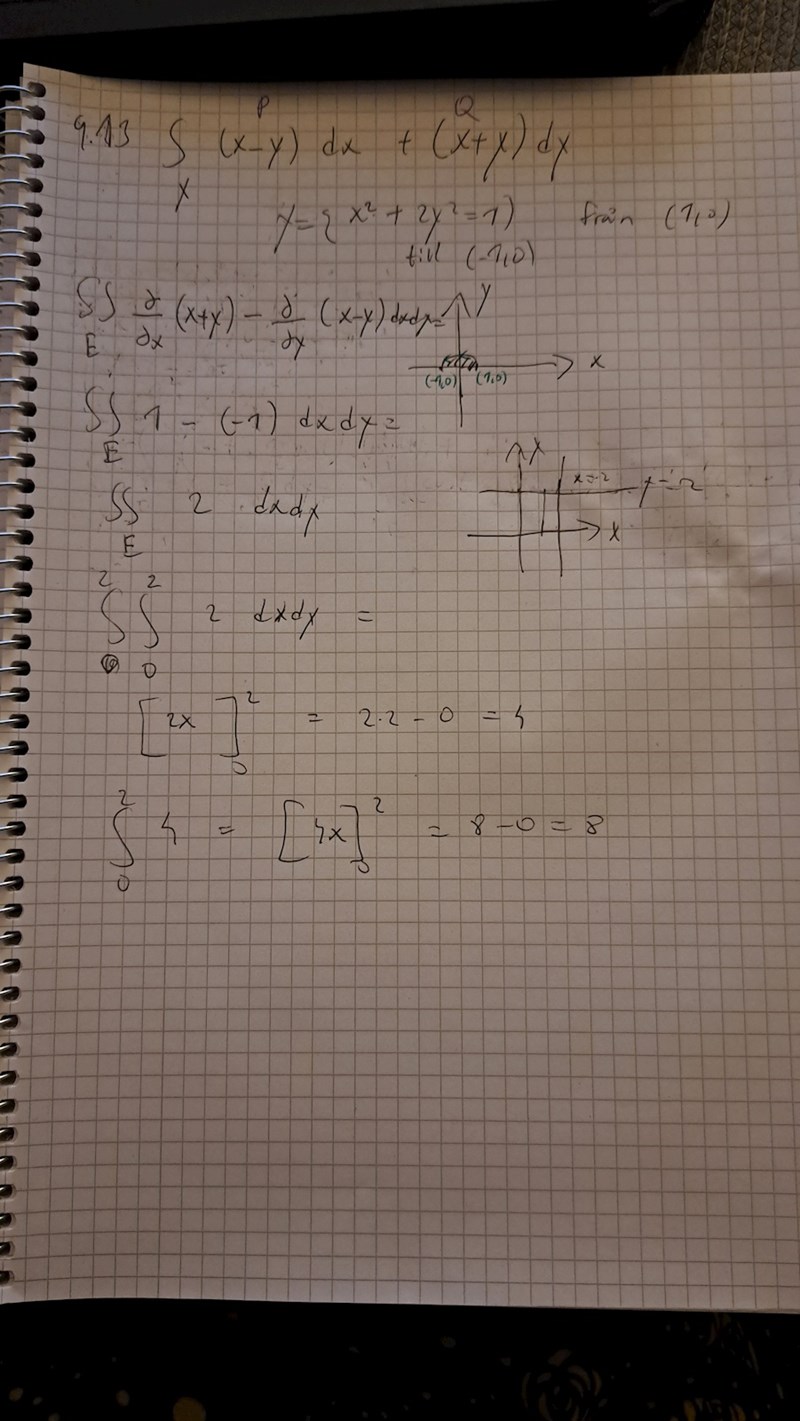 P Q
9.13 ∫ (x-y) dx + (x+y) dy
γ
γ = { x² + 2y² = 1) från (1,0)
till (-1,0)
∬ ∂/∂x (x+y) - ∂/∂y (x-y) dxdy =
E
y
x
(-1,0) (1,0)
∬ 1 - (-1) dxdy =
E
y
x=2
y=2
x
∬ 2 dxdy
E
2 2
∫ ∫ 2 dxdy =
0 0
[2x]₀² = 2·2 - 0 = 4
2
∫ 4 = [4x]₀² = 8 - 0 = 8
0